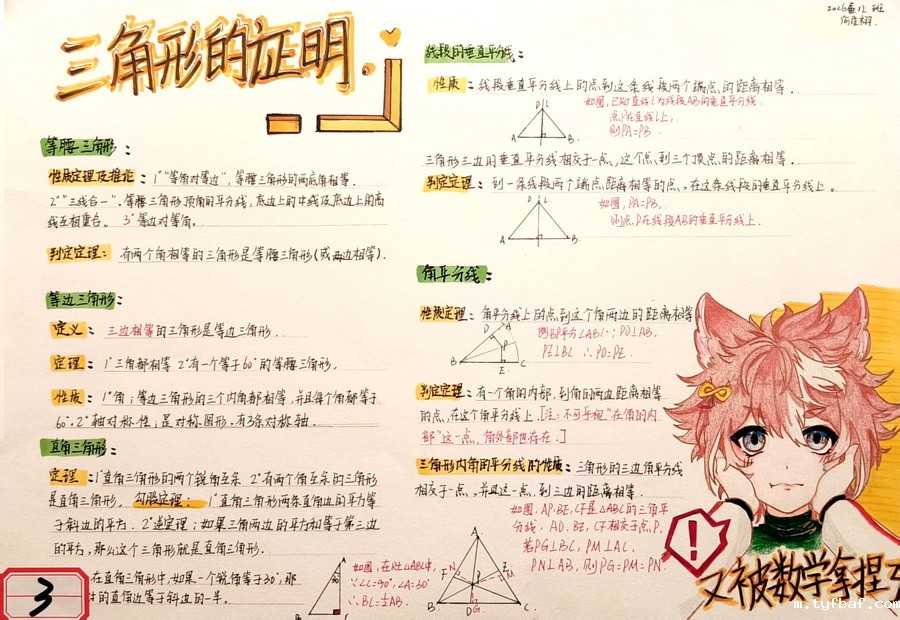 三角形的证明.
2026届12班
等腰三角形:
性质定理及推论: 1°"等角对等边",等腰三角形的两底角相等.
2°"三线合一".等腰三角形顶角的平分线,底边上的中线及底边上的高
线互相重合。 3°等边对等角。
判定定理: 有两个角相等的三角形是等腰三角形(或两边相等).
等边三角形:
定义: 三边相等的三角形是等边三角形.
定理: 1°三角都相等 2°有一个等于60°的等腰三角形.
性质: 1°角;等边三角形的三个内角都相等,并且每个角都等于
60°.2°轴对称性;是对称图形.有3条对称轴.
直角三角形:
定理:1°直角三角形的两个锐角互余 2°有两个角互余的三角形
是直角三角形。 勾股定理: 1°直角三角形两条直角边的平方等
于斜边的平方. 2°逆定理:如果三角两边的平方和等于第三边
的平方,那么这个三角形就是直角三角形.
在直角三角形中,如果一个锐角等于30°,那
的直角边等于斜边的一半。
如图,在Rt△ABC中,
∵∠C=90°,∠A=30°
∴BC=½AB.
3
线段的垂直平分线:
性质: 线段垂直平分线上的点到这条线段两个端点的距离相等.
如图,已知直线l为线段AB的垂直平分线.
点P在直线l上,
则PA=PB.
A B
三角形三边的垂直平分线相交于一点,这个点到三个顶点的距离相等.
判定定理: 到一条线段两个端点距离相等的点,在这条线段的垂直平分线上。
如图,PA=PB,
则点P在线段AB的垂直平分线上.
A B
角平分线:
性质定理: 角平分线上的点到这个角两边的距离相等
则BP平分∠ABC;PD⊥AB,
PE⊥BC ∴PD=PE.
D A P B E C
判定定理:有一个角的内部,到角的两边距离相等
的点,在这个角平分线上[注:不可忽视"在角的内
部"这一点,角外部也存在.]
三角形内角的平分线的性质: 三角形的三边角平分线
相交于一点,并且这一点到三边的距离相等.
如图,AP,BE,CF是△ABC的三角平
分线,AD,BE,CF相交于点P,
若PG⊥BC,PM⊥AC,
PN⊥AB,则PG=PM=PN.
A F N E M P B D G C
!
又被数学拿捏了
m.tyfbaf.com